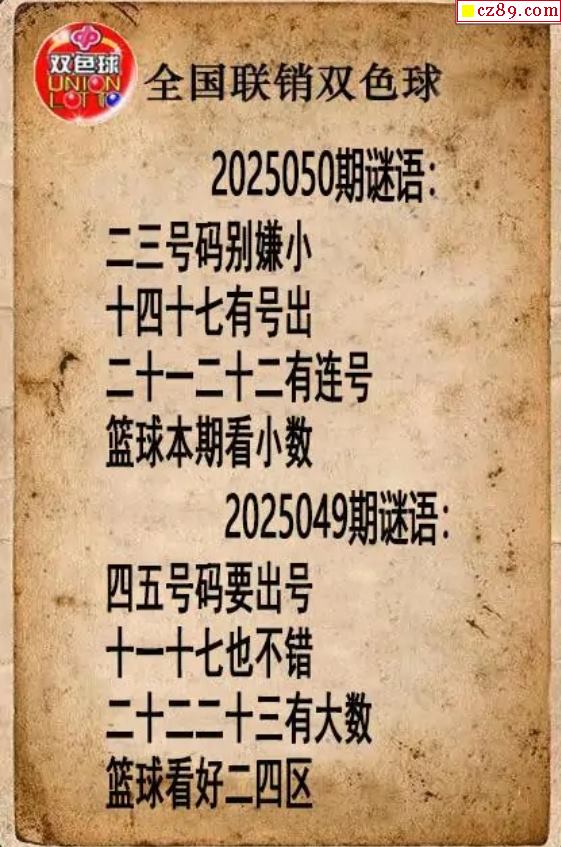 cz89.com
中
双色球
UNION
LOTTO
全国联销双色球
2025050期谜语:
二三号码别嫌小
十四十七有号出
二十一二十二有连号
篮球本期看小数
2025049期谜语:
四五号码要出号
十一十七也不错
二十二二十三有大数
篮球看好二四区